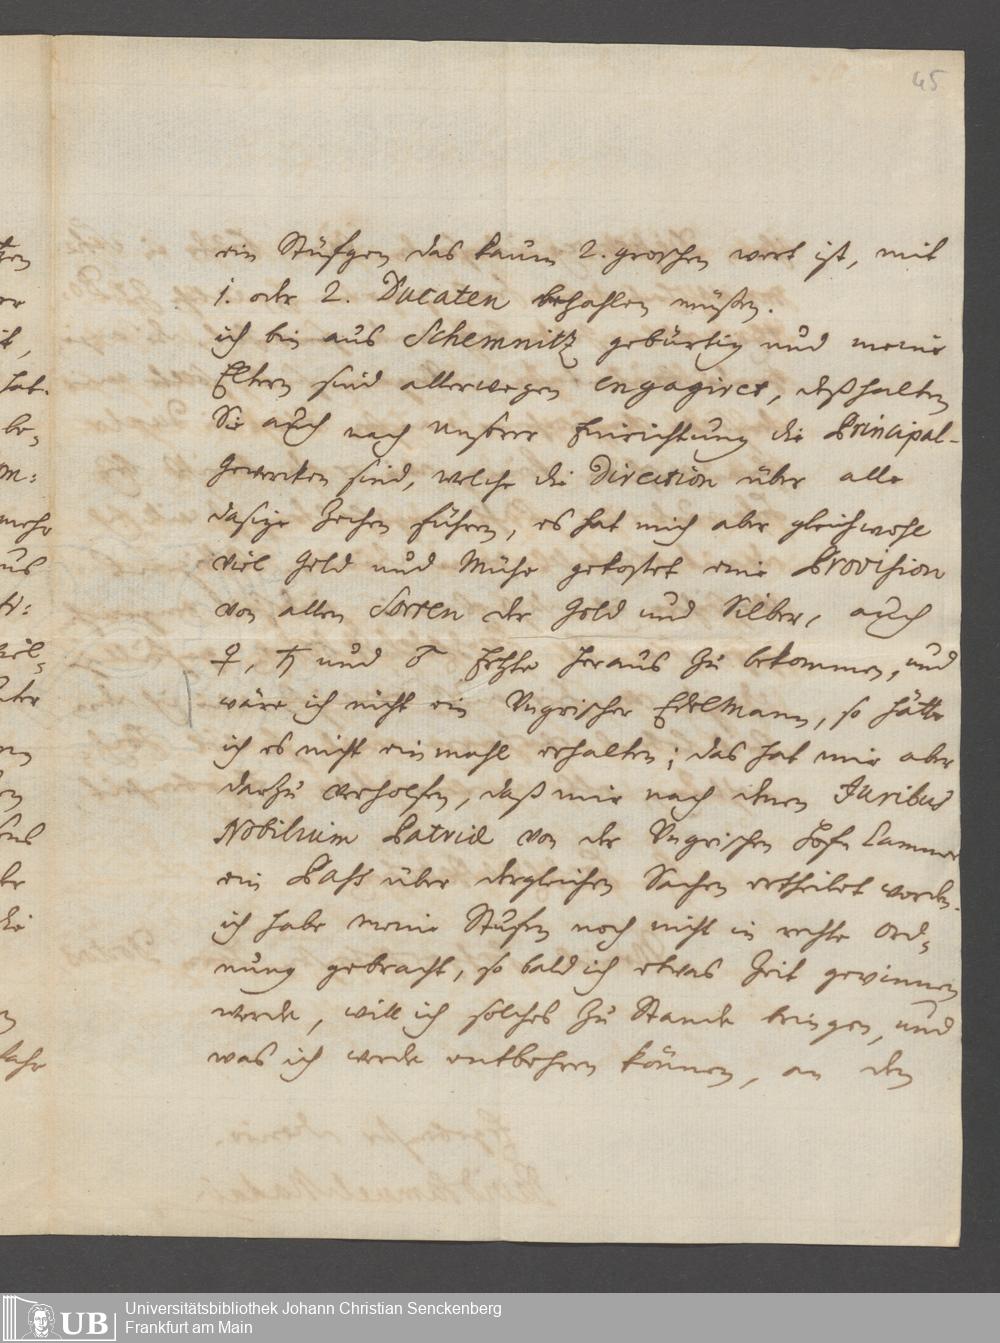 45
ein Stüfgen das kaum 2. groschen wert ist, mit
1. oder 2. Ducaten bezahlen müßen.
ich bin aus Schemnitz gebürtig und meine
Eltern sind allerwegen engagiret, deßhalben
Sie auch nach unserer Einrichtung die Principal-
Gewercken sind, welche die Direction über alle
dasige Zechen führen, es hat mich aber gleichwohl
viel Geld und Mühe gekostet eine Provision
von allen Sorten der Gold und Silber, auch
♀, ♄ und ♂ Ertzte heraus zu bekommen, und
wäre ich nicht ein Ungrischer Edelmann, so hätte
ich es nicht einmahl erhalten; das hat mir aber
darzu verholfen, daß mir nach denen Juribus
Nobilium Patriæ von der Ungrischen Hofcammer
ein Pass über dergleichen Sachen ertheilet worden.
ich habe meine Stufen noch nicht in rechte Ord=
nung gebracht, so bald ich etwas Zeit gewinnen
werde, will ich solches zu Stande bringen, und
was ich werde entbehren können, an den
Universitätsbibliothek Johann Christian Senckenberg
Frankfurt am Main
UB